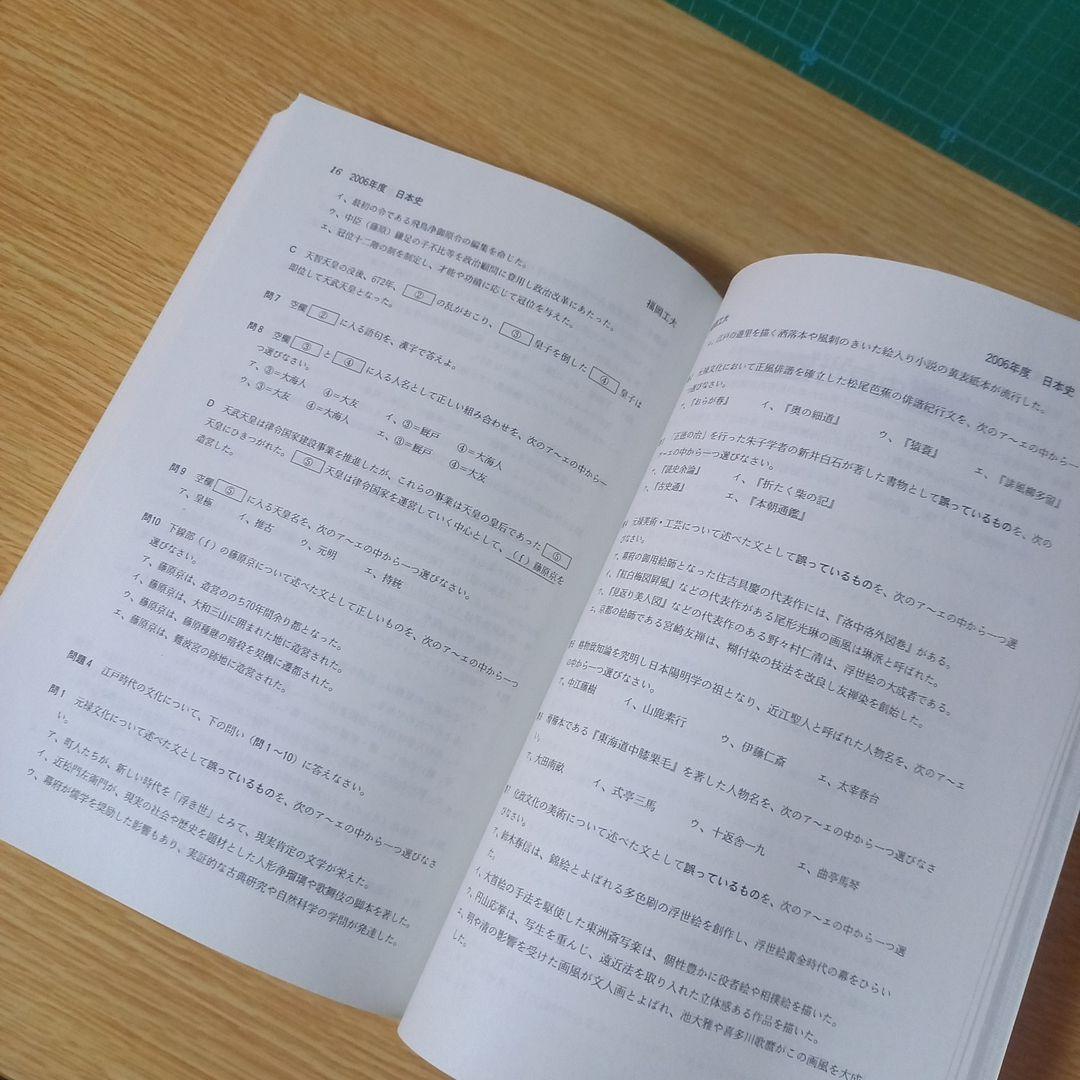 16 2006年度 日本史
福岡工大
イ、最初の令である飛鳥浄御原令の編集を命じた。
ウ、中臣（藤原）鎌足の子不比等を政治顧問に登用し政治改革にあたった。
エ、冠位十二階の制を制定し、才能や功績に応じて冠位を与えた。
C 天智天皇の没後、672年、②の乱がおこり、③皇子を倒した④皇子は
即位して天武天皇となった。
問7 空欄②に入る語句を、漢字で答えよ。
問8 空欄③と④に入る人名として正しい組み合わせを、次のア～エの中から一
つ選びなさい。
ア、③＝大海人 ④＝大友 イ、③＝厩戸 ④＝大海人
ウ、③＝大友 ④＝大海人 エ、③＝厩戸 ④＝大友
D 天武天皇は律令国家建設事業を推進したが、これらの事業は天皇の皇后であった⑤
天皇にひきつがれた。⑤天皇は律令国家を運営していく中心として、(f)藤原京を
造営した。
問9 空欄⑤に入る天皇名を、次のア～エの中から一つ選びなさい。
ア、皇極 イ、推古 ウ、元明 エ、持統
問10 下線部（f）の藤原京について述べた文として正しいものを、次のア～エの中から一つ
選びなさい。
ア、藤原京は、造営ののち70年間余り都となった。
イ、藤原京は、大和三山に囲まれた地に造営された。
ウ、藤原京は、藤原種継の暗殺を契機に遷都された。
エ、藤原京は、難波宮の跡地に造営された。
問題4 江戸時代の文化について、下の問い（問1～10）に答えなさい。
問1 元禄文化について述べた文として誤っているものを、次のア～エの中から一つ選びなさ
い。
ア、町人たちが、新しい時代を「浮き世」とみて、現実肯定の文学が栄えた。
イ、近松門左衛門が、現実の社会や歴史を題材とした人形浄瑠璃や歌舞伎の脚本を著した。
ウ、幕府が儒学を奨励した影響もあり、実証的な古典研究や自然科学の学問が発達した。
工大
2006年度 日本史
江戸の遊里を描く洒落本や風刺のきいた絵入り小説の黄表紙本が流行した。
元禄文化において正風俳諧を確立した松尾芭蕉の俳諧紀行文を、次のア～エの中から一
つ選びなさい。
ア、『おらが春』 イ、『奥の細道』 ウ、『猿蓑』 エ、『誹風柳多留』
「正徳の治」を行った朱子学者の新井白石が著した書物として誤っているものを、次の
ア～エの中から一つ選びなさい。
『読史余論』 イ、『折たく柴の記』
『古史通』 エ、『本朝通鑑』
元禄美術・工芸について述べた文として誤っているものを、次のア～エの中から一つ選
びなさい。
ア、幕府の御用絵師となった住吉具慶の代表作には、『洛中洛外図巻』がある。
イ、『紅白梅図屏風』などの代表作がある尾形光琳の画風は琳派と呼ばれた。
ウ、『見返り美人図』などの代表作のある野々村仁清は、浮世絵の大成者である。
エ、京都の絵師である宮崎友禅は、糊付染の技法を改良し友禅染を創始した。
格物致知論を究明し日本陽明学の祖となり、近江聖人と呼ばれた人物名を、次のア～エ
の中から一つ選びなさい。
ア、中江藤樹 イ、山鹿素行 ウ、伊藤仁斎 エ、太宰春台
滑稽本である『東海道中膝栗毛』を著した人物名を、次のア～エの中から一つ選びなさ
い。
ア、大田南畝 イ、式亭三馬 ウ、十返舎一九 エ、曲亭馬琴
化政文化の美術について述べた文として誤っているものを、次のア～エの中から一つ選
びなさい。
ア、鈴木春信は、錦絵とよばれる多色刷の浮世絵を創作し、浮世絵黄金時代の幕をひらい
た。
イ、大首絵の手法を駆使した東洲斎写楽は、個性豊かに役者絵や相撲絵を描いた。
ウ、円山応挙は、写生を重んじ、遠近法を取り入れた立体感ある作品を描いた。
エ、明や清の影響を受けた画風が文人画とよばれ、池大雅や喜多川歌麿がこの画風を大成
した。